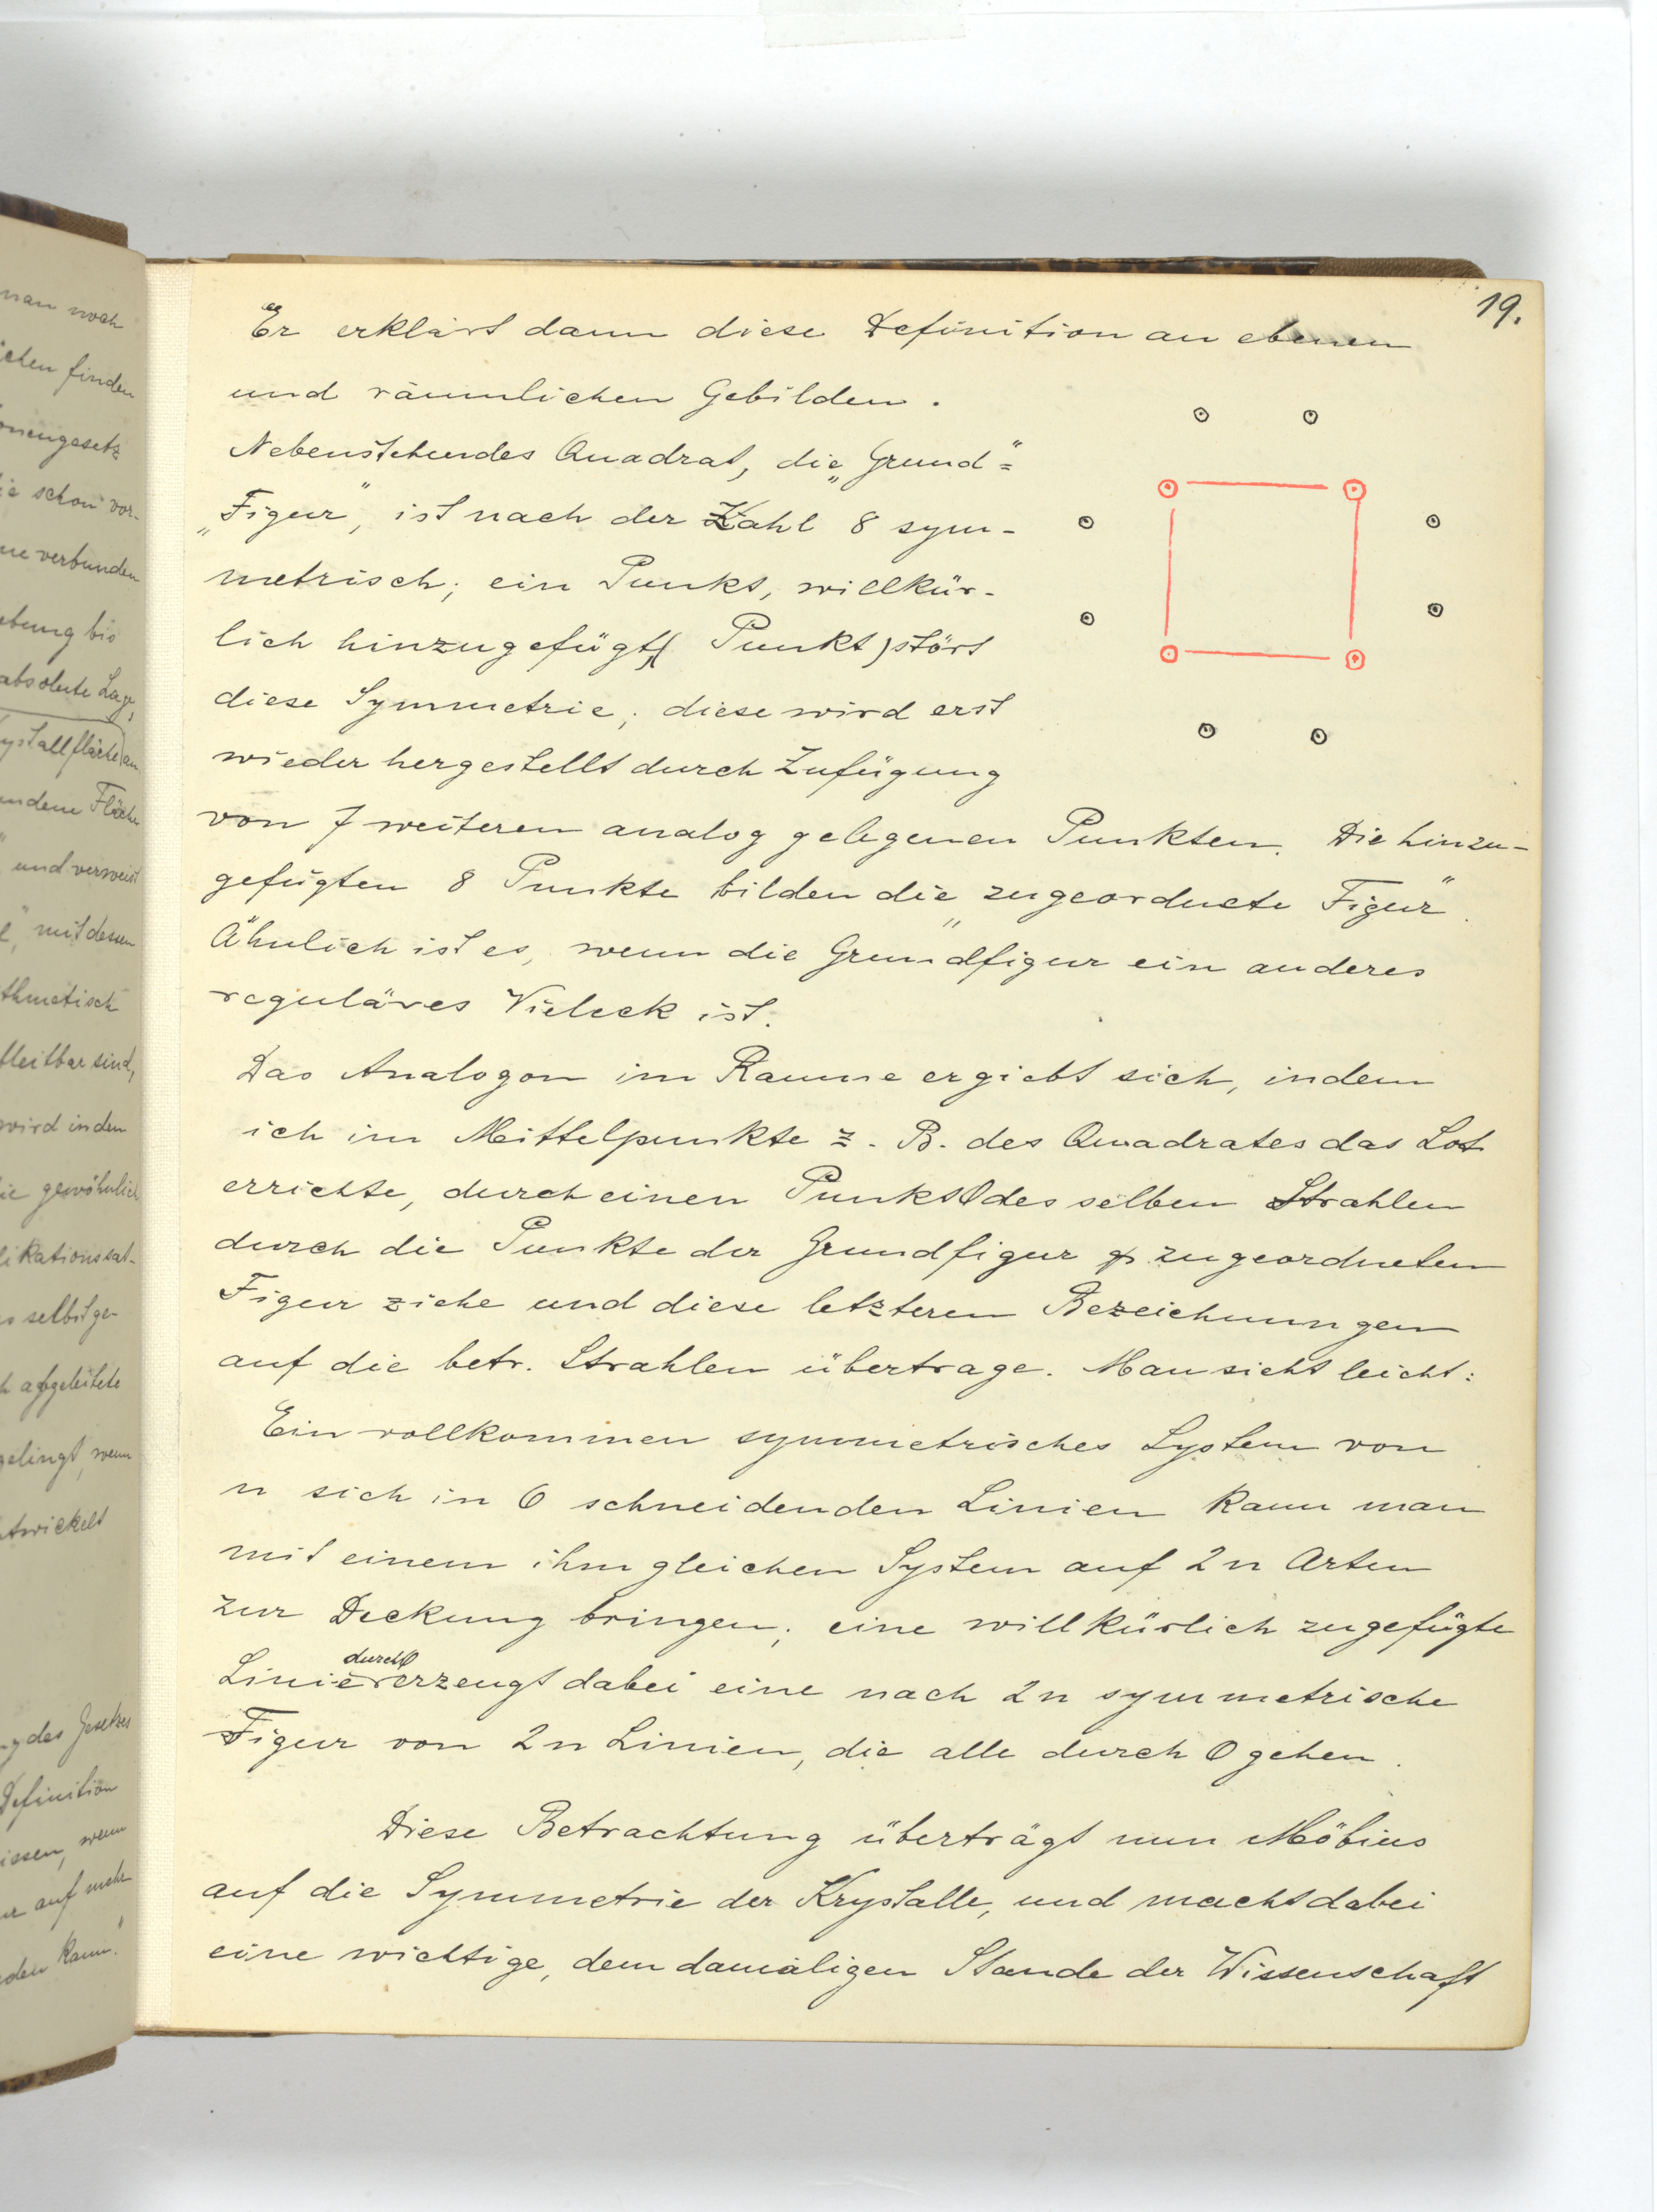 19.
Er erklärt dann diese Definition an ebenen
und räumlichen Gebilden.
Nebenstehendes Quadrat, die „Grund"=
„Figur", ist nach der Zahl 8 sym-
metrisch; ein Punkt, willkür-
lich hinzugefügt, (Punkt) stört
diese Symmetrie; diese wird erst
wieder hergestellt durch Zufügung
von 7 weiteren analog gelegenen Punkten. Die hinzu-
gefügten 8 Punkte bilden die „zugeordnete Figur".
Ähnlich ist es, wenn die Grundfigur ein anderes
reguläres Vieleck ist.
Das Analogon im Raume ergiebt sich, indem
ich im Mittelpunkte z. B. des Quadrates das Lot
errichte, durch einen Punkt O desselben Strahlen
durch die Punkte der Grundfigur & zugeordneten
Figur ziehe und diese letzteren Bezeichnungen
auf die betr. Strahlen übertrage. Man sieht leicht:
Ein vollkommen symmetrisches System von
n sich in O schneidenden Linien kann man
mit einem ihm gleichen System auf 2n Arten
zur Deckung bringen; eine willkürlich zugefügte
durch O
Linie erzeugt dabei eine nach 2n symmetrische
Figur von 2n Linien, die alle durch O gehen.
Diese Betrachtung überträgt nun Möbius
auf die Symmetrie der Krystalle, und macht dabei
eine wichtige, dem damaligen Stande der Wissenschaft
man noch
finden
schon vor-
verbunden
bis
absolute Lage,
und verweist
mit dessen
sind,
wird in den
gewöhnlich
selbst ge-
abgeleitete
gelingt, wenn
des Gesetzes
Definition
wenn
auf mehr
kann."